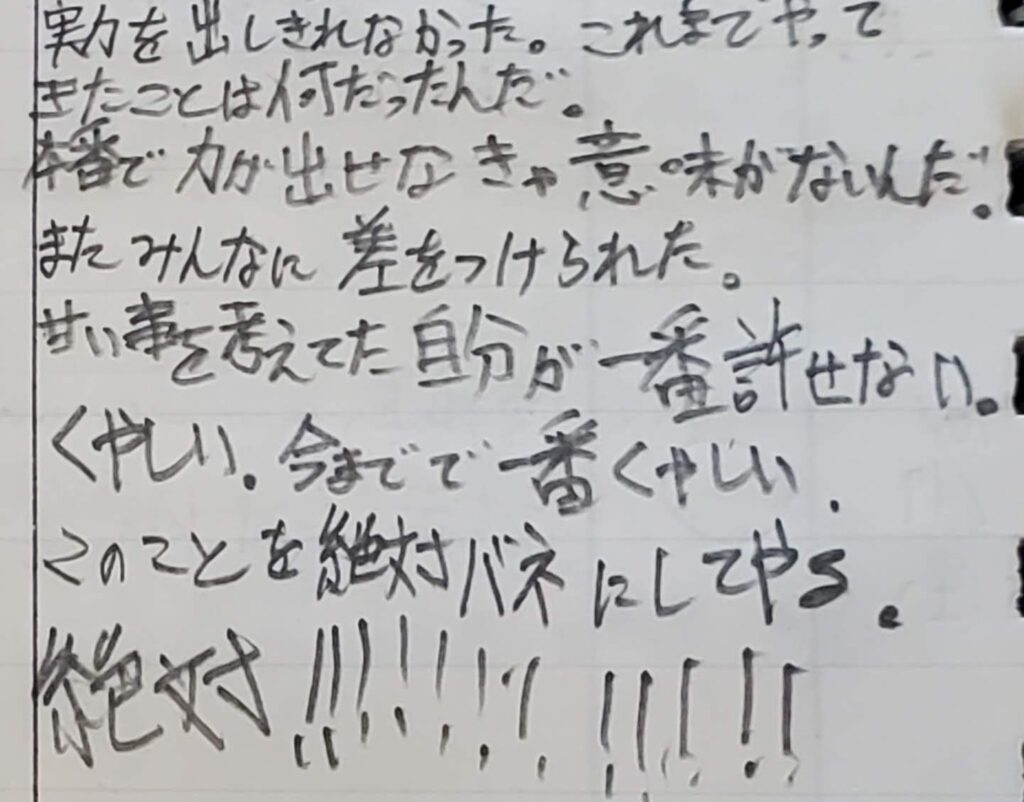 実力を出しきれなかった。これまでやって
きたことは何だったんだ。
本番で力が出せなきゃ意味がないんだ。
またみんなに差をつけられた。
甘い事を考えてた自分が一番許せない。
くやしい。今までで一番くやしい.
このことを絶対バネにしてやる。
絶対!!!!!!!!!!!!!